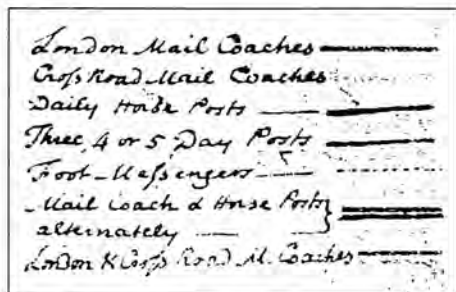 London Mail Coaches
Croſs Road Mail Coaches
Daily Horse Posts
Three, 4 or 5 Day Posts
Foot-Meſsengers
Mail Coach & Horse Posts
alternately
London & Croſs Road M. Coaches